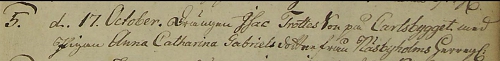 5. d. 17. October. Drängen Isac Trottes Son på Carlsbygget med
Pigan Anna Catharina Gabriels dotter från Näsbyholms